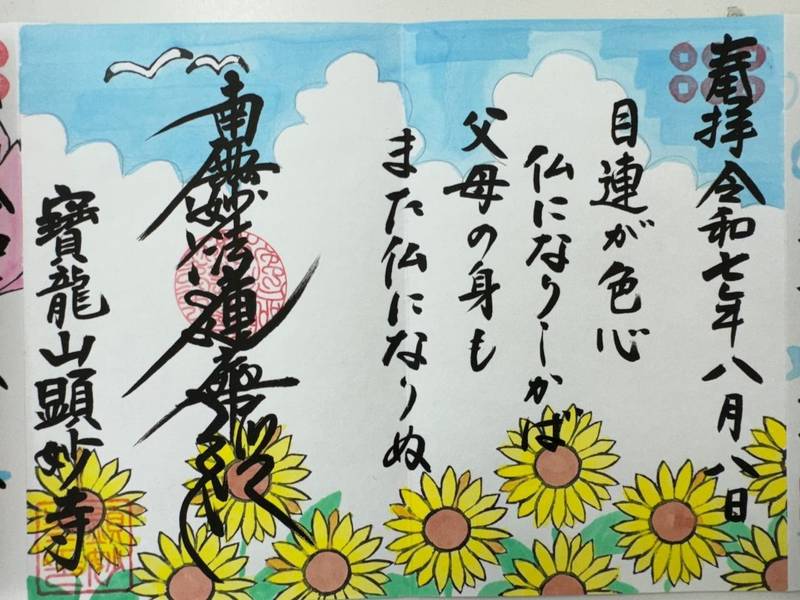 奉拝 令和七年八月八日
目連が色心
仏になりしかば
父母の身も
また仏になりぬ
南無妙法蓮華経
寶龍山顕妙寺